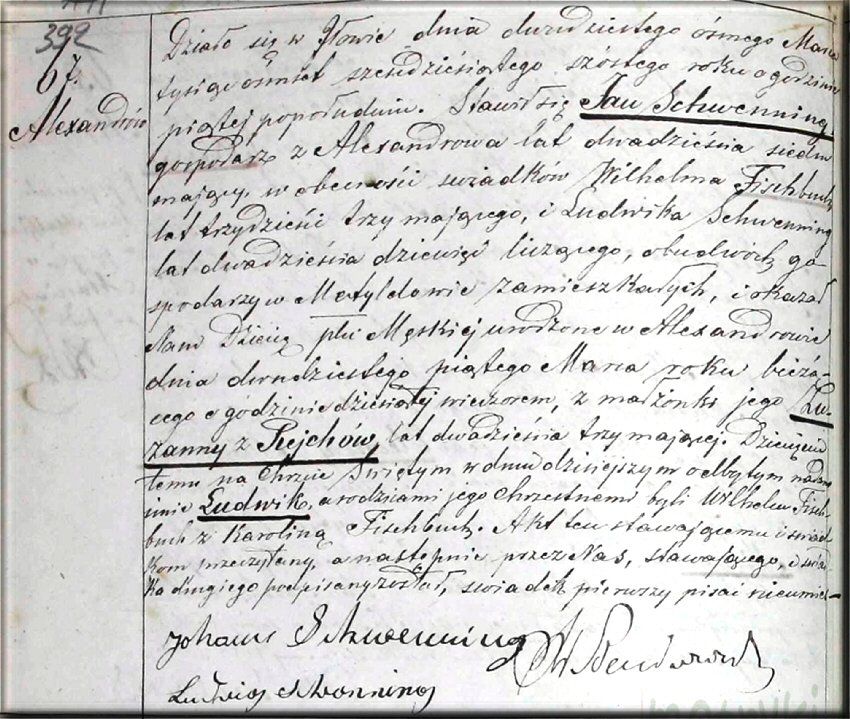 392
67.
Alexandrów
Działo się w Iłowie dnia dwudziestego ósmego Marca
tysiąc ośmset sześćdziesiątego szóstego roku o godzinie
piątej popołudniu. Stawił się Jan Schwenning
gospodarz z Alexandrowa lat dwadzieścia siedm
mający, w obecności świadków Wilhelma Fischbuch
lat trzydzieści trzy mającego, i Ludwika Schwenning
lat dwadzieścia dziewięć liczącego, obudwóch go-
spodarzy w Matyldowie zamieszkałych, i okazał
Nam Dziecię płci Męskiej urodzone w Alexandrowie
dnia dwudziestego piątego Marca roku bieżą-
cego o godzinie dziesiątej wieczorem, z małżonki jego Zu-
zanny z Rejchów, lat dwadzieścia trzy mającej. Dziecięciu
temu na Chrzcie Świętym w dniu dzisiejszym odbytym nadano
imie Ludwik, a rodzicami jego Chrzestnemi byli Wilhelm Fisch-
buch z Karoliną Fischbuch. Akt ten stawającemu i świad-
kom przeczytany, a następnie przez Nas, stawającego, i świad-
ka drugiego podpisany został, świadek pierwszy pisać nieumie
Johann Schwenning
Ludwig Schwenning